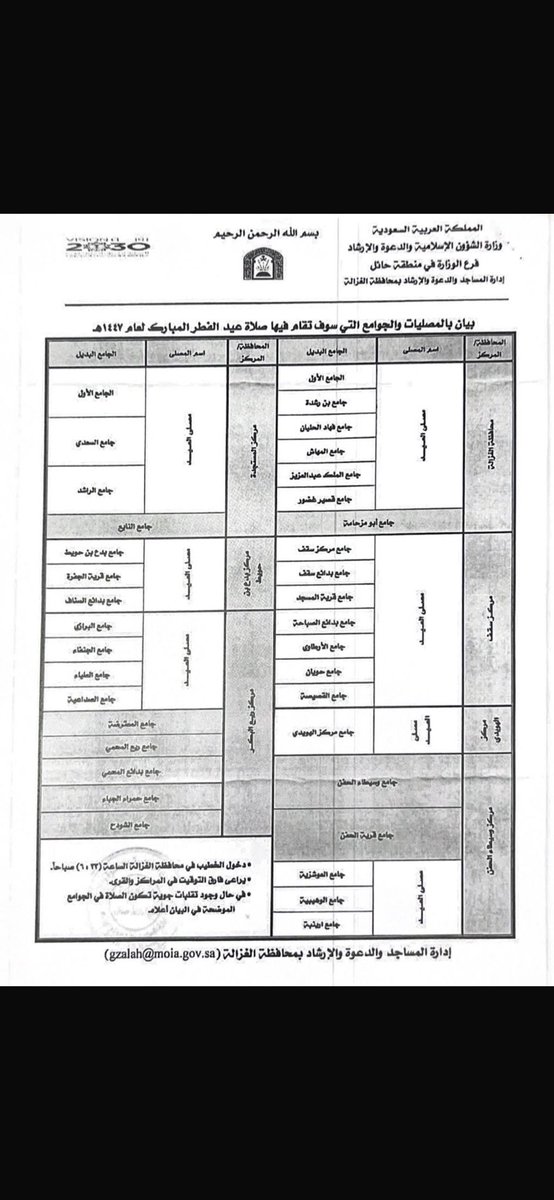 المملكة العربية السعودية
وزارة الشؤون الإسلامية والدعوة والإرشاد
فرع الوزارة في منطقة حائل
إدارة المساجد والدعوة والإرشاد بمحافظة الغزالة
بسم الله الرحمن الرحيم
2030
بيان بالمصليات والجوامع التي سوف تقام فيها صلاة عيد الفطر المبارك لعام ١٤٤٧هـ
المحافظة/ المركز
اسم المصلى
الجامع البديل
محافظة الغزالة
مصلى العيد
الجامع الأول
جامع بن رشدة
جامع فهاد العليان
جامع المهاش
جامع الملك عبدالعزيز
جامع قصير غضور
جامع أبو مزحامة
مركز سقف
مصلى العيد
جامع مركز سقف
جامع بدائع سقف
جامع قرية المسجد
جامع بدائع الصباحة
جامع الأرطاوي
جامع حوبان
جامع القصيصة
مركز الهويدي
مصلى العيد
جامع مركز الهويدي
مركز وسيطاء الحفن
جامع وسيطاء الحفن
جامع قرية الحفن
مصلى العيد
جامع الموشزية
جامع الوهيبية
جامع ارينبة
المحافظة/ المركز
اسم المصلى
الجامع البديل
مركز المستجدة
مصلى العيد
الجامع الأول
جامع السعدي
جامع الراشد
جامع النايع
مركز بدع بن حويط
مصلى العيد
جامع بدع بن حويط
جامع قرية الجفرة
جامع بدائع السناف
مركز ريع البكر
مصلى العيد
جامع البرازي
جامع الجثغاء
جامع العلياء
جامع الصداعية
جامع المطرفضة
جامع ريع المعمي
جامع بدائع المعمي
جامع حمراء الجباء
جامع الشودح
• دخول الخطيب في محافظة الغزالة الساعة (٦:٢٢) صباحاً.
• يراعى فارق التوقيت في المراكز والقرى.
• في حال وجود تقلبات جوية تكون الصلاة في الجوامع
الموضحة في البيان أعلاه.
إدارة المساجد والدعوة والإرشاد بمحافظة الغزالة (gzalah@moia.gov.sa)